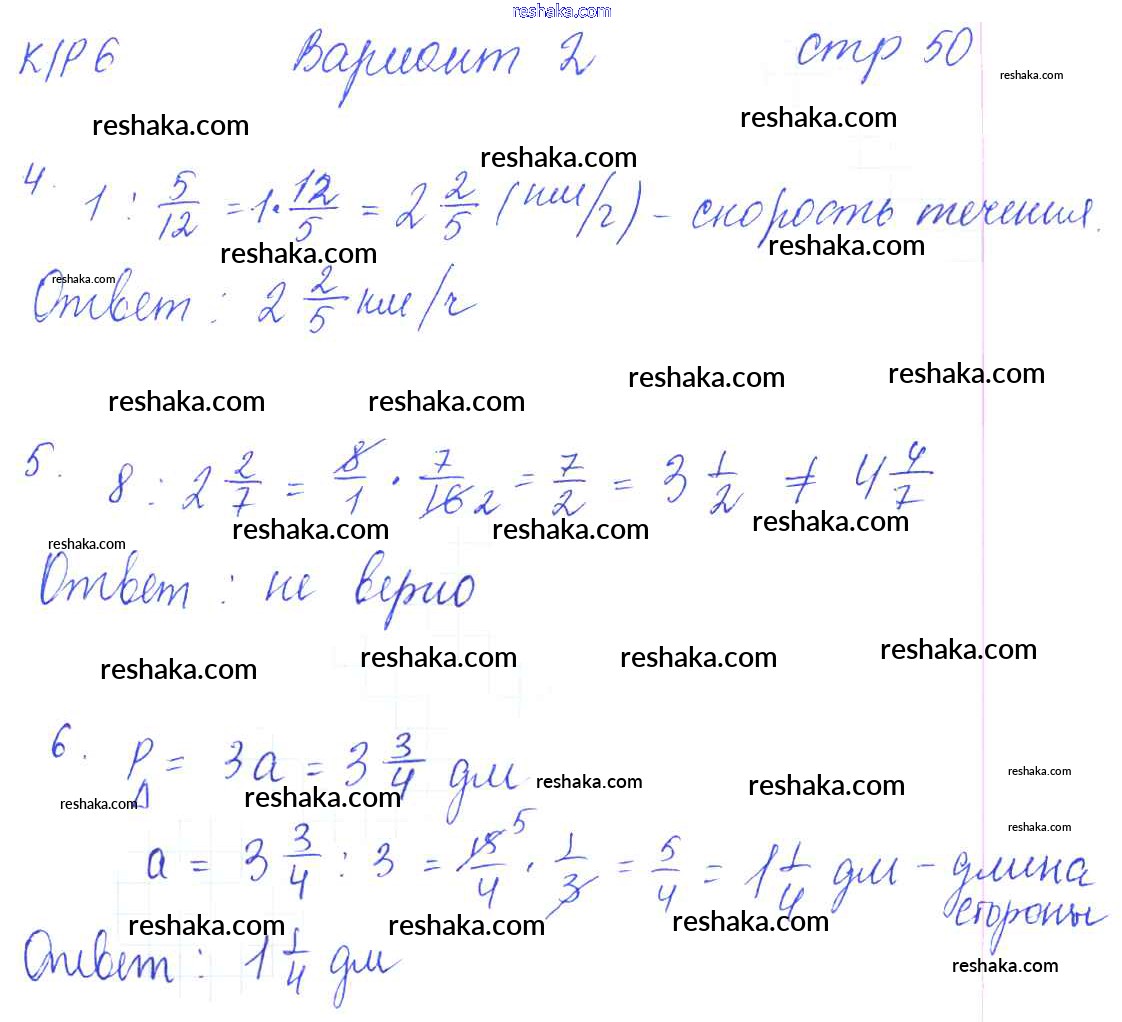 reshaka.com
К/Р 6 Вариант 2 стр 50
reshaka.com
reshaka.com reshaka.com
reshaka.com
4. 1 : 5/12 = 1 · 12/5 = 2 2/5 (км/ч) - скорость течения.
reshaka.com reshaka.com
reshaka.com
Ответ : 2 2/5 км/ч
reshaka.com reshaka.com
reshaka.com reshaka.com
5. 8 : 2 2/7 = 8/1 · 7/16 2 = 7/2 = 3 1/2 ≠ 4 4/7
reshaka.com reshaka.com reshaka.com
reshaka.com
Ответ : не верно
reshaka.com reshaka.com reshaka.com reshaka.com
6. P△ = 3a = 3 3/4 дм
reshaka.com reshaka.com reshaka.com
reshaka.com reshaka.com
reshaka.com
a = 3 3/4 : 3 = 15/4 5 · 1/3 = 5/4 = 1 1/4 дм - длина
стороны
reshaka.com reshaka.com reshaka.com
Ответ : 1 1/4 дм
reshaka.com